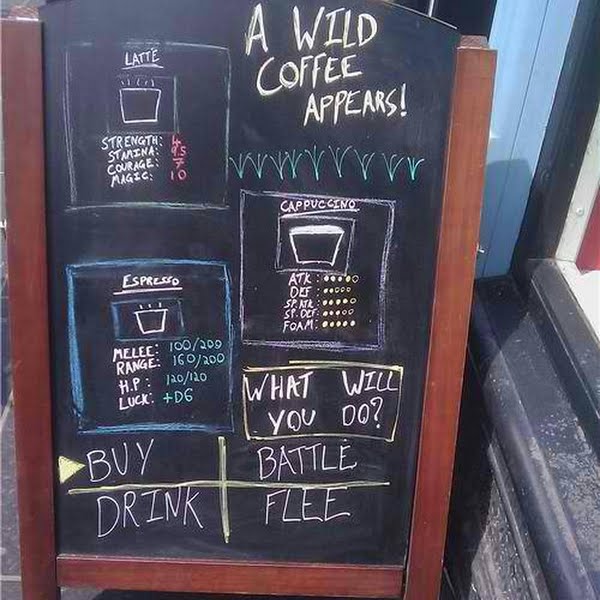 A WILD
COFFEE
APPEARS!
LATTE
STRENGTH: 4
STAMINA: 95
COURAGE: 7
MAGIC: 10
CAPPUCCINO
ATK:
DEF
SP. ATK:
SP. DEF:
FOAM:
ESPRESSO
MELEE: 100/200
RANGE: 160/200
H.P: 120/120
LUCK: +D6
WHAT WILL
YOU DO?
BUY BATTLE
DRINK FLEE